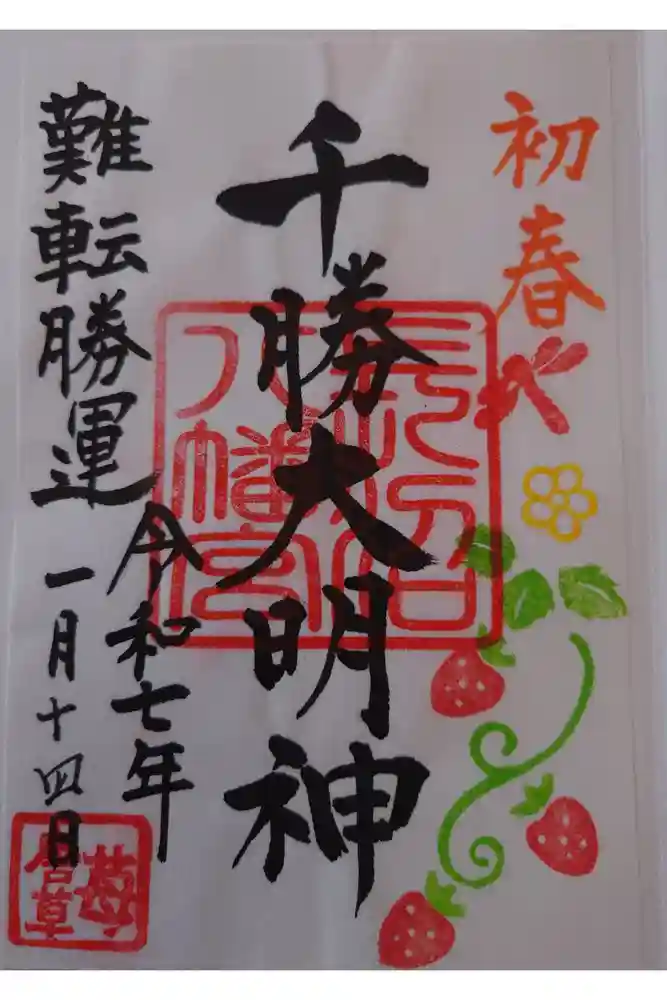 初春
千勝大明神
八幡宮
難転勝運
令和七年
一月十四日
苺
唐草